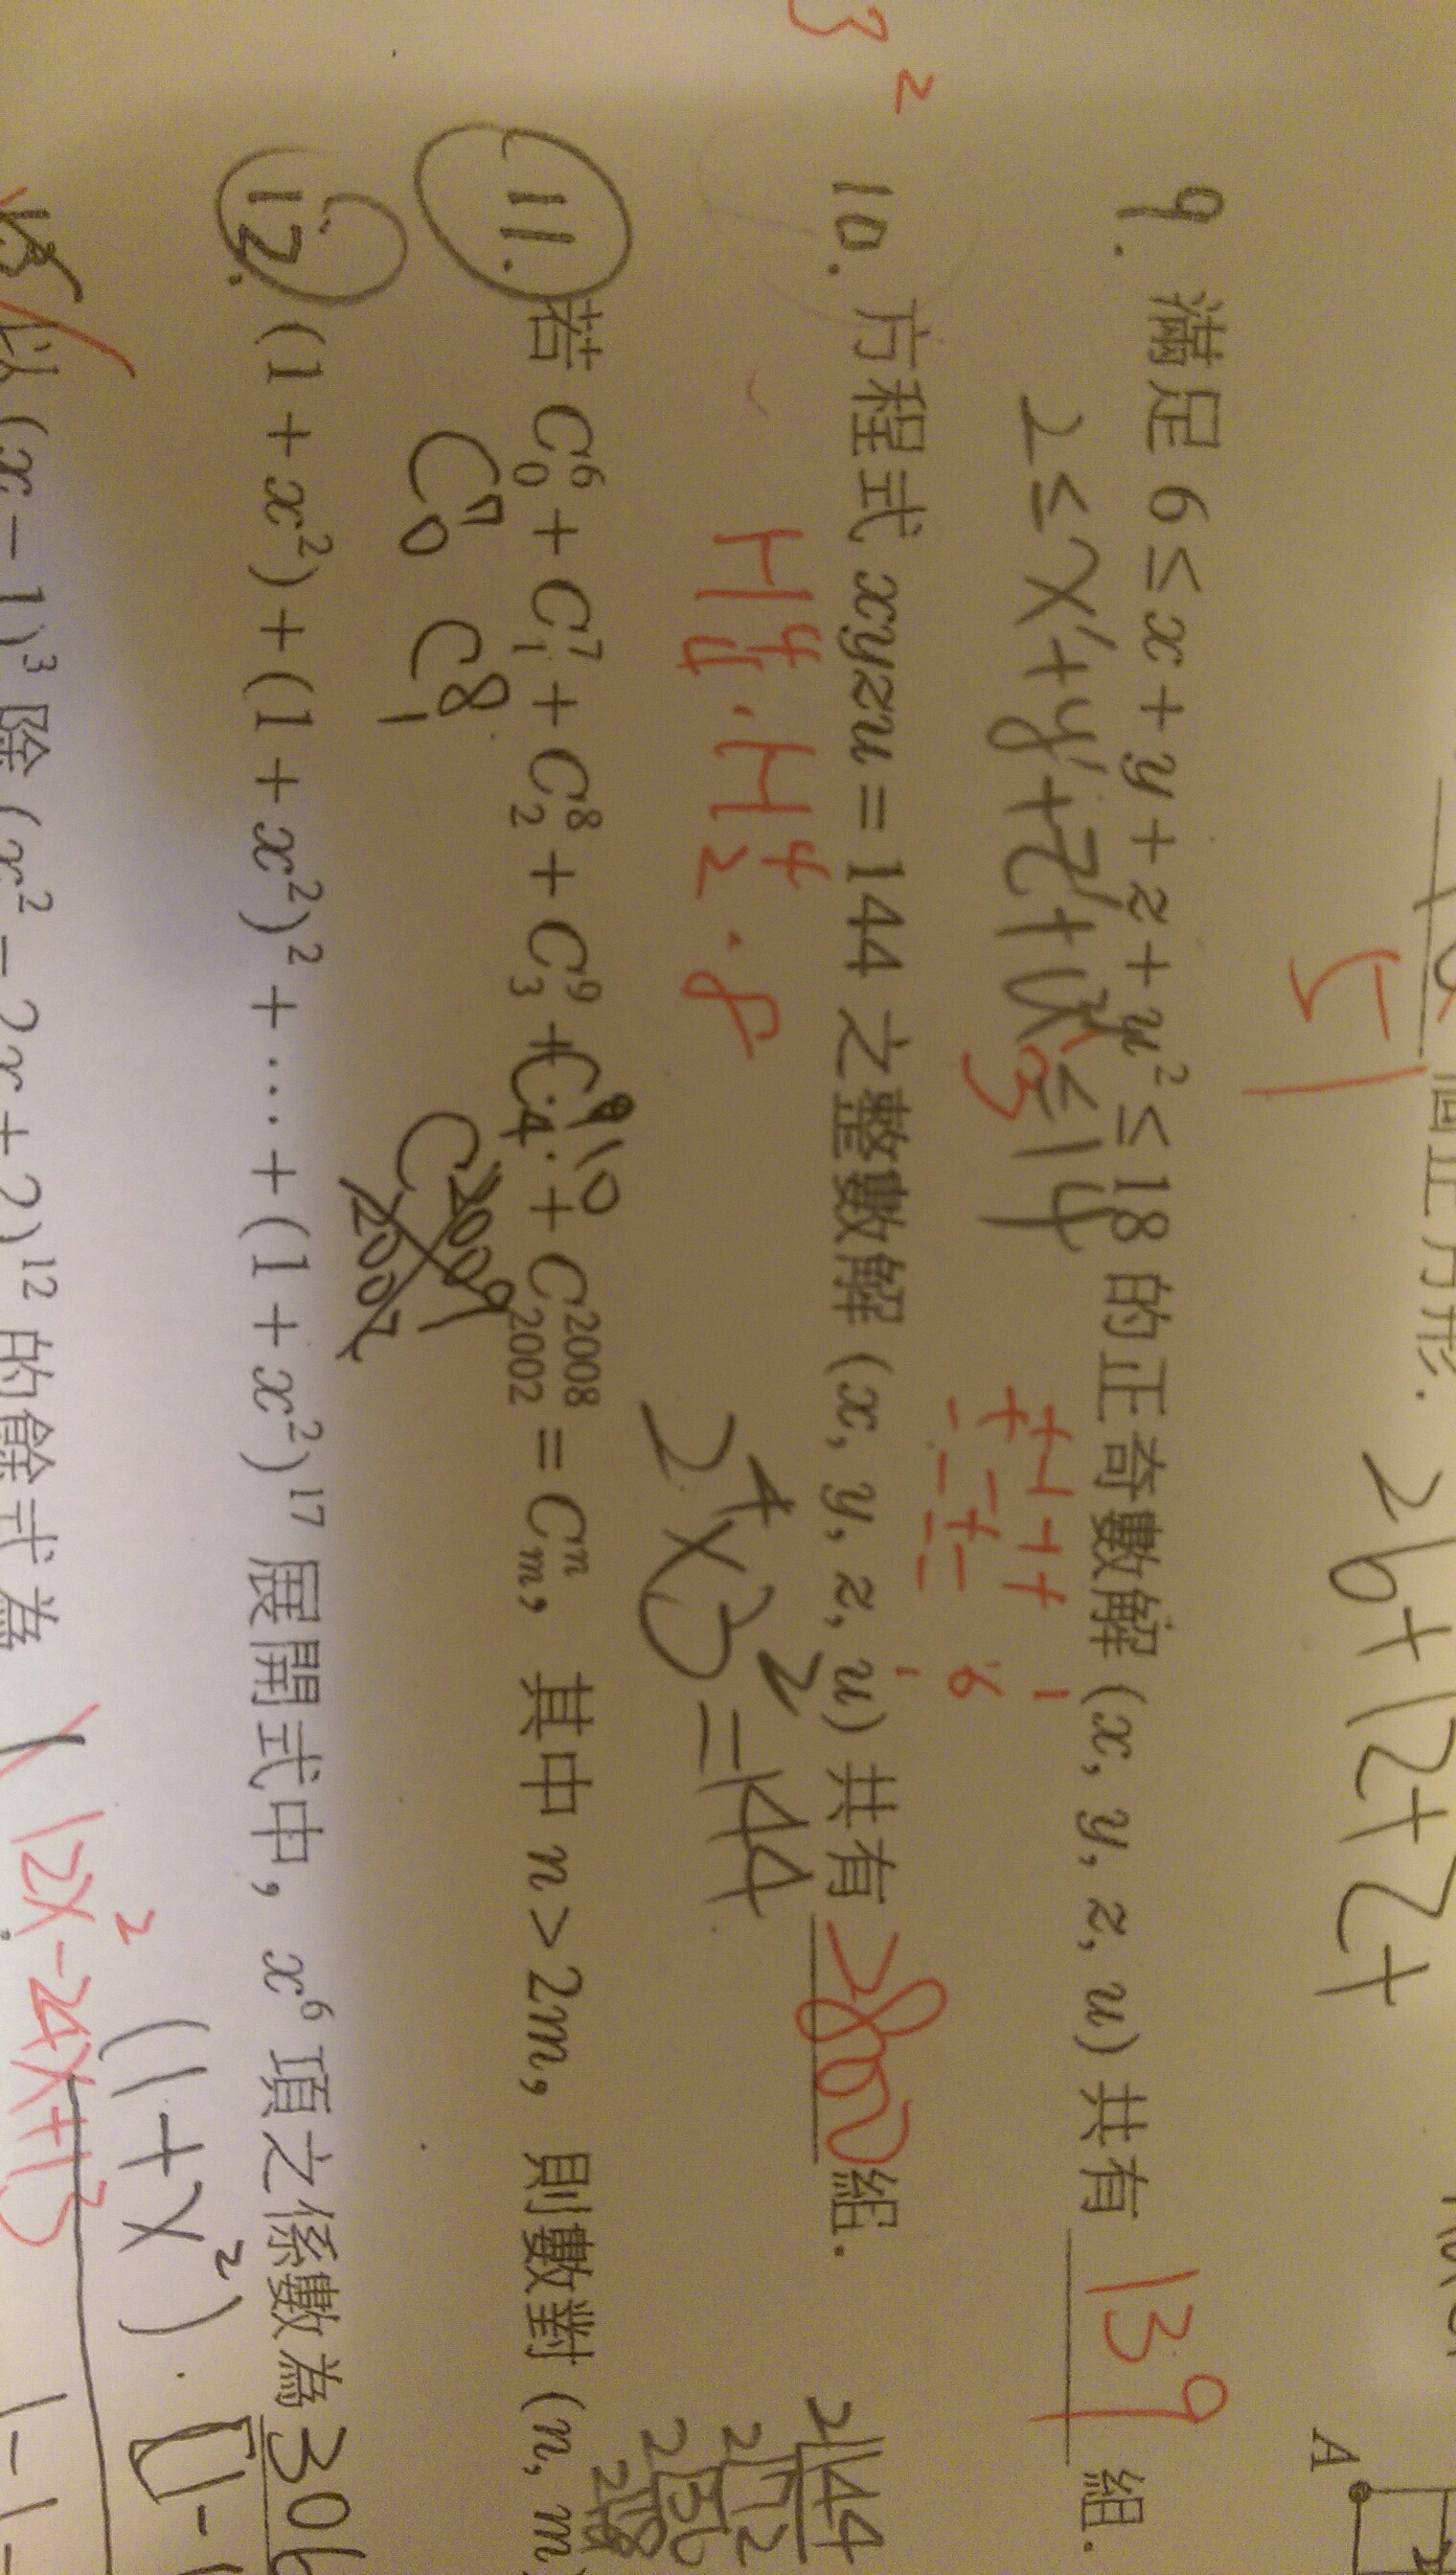 51
26+12+2+
9. 滿足 6 ≤ x + y + z + u² ≤ 18 的正奇數解 (x, y, z, u) 共有 139 組.
2 ≤ x' + y' + z' + u² ≤ 14
3
10. 方程式 xyzu = 144 之整數解 (x, y, z, u) 共有 2800 組.
H⁴₄ · H⁴₂ · 8
2⁴ × 3² = 144
2 144
2 72
2 36
2 18
11. 若 C⁶₀ + C⁷₁ + C⁸₂ + C⁹₃ + ⋯ + C²⁰⁰⁸₂₀₀₂ = Cⁿₘ, 其中 n > 2m, 則數對 (n, m)
C⁷₀ C⁸₁
12. (1 + x²) + (1 + x²)² + ⋯ + (1 + x²)¹⁷ 展開式中, x⁶ 項之係數為 306
(1 + x²) · [1 -
以 (x − 1)³ 除 (x² − 2x + 2)¹² 的餘式為 12x² − 24x + 13
A